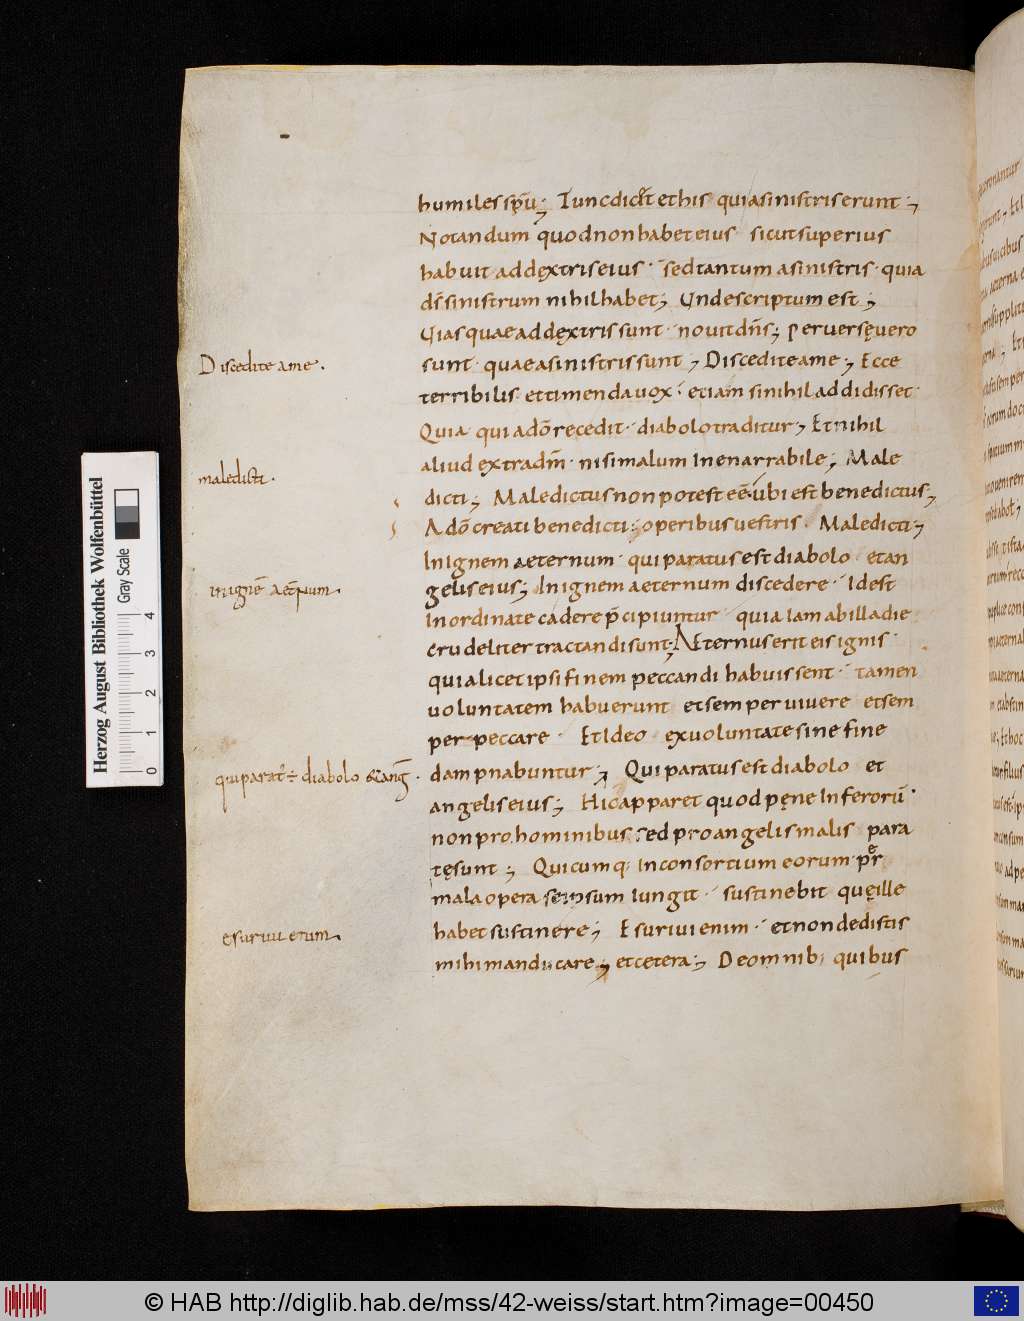 humiles spu; Tunc dicet et his qui a sinistris erunt;
Notandum quod non habet eius sicut superius
habuit ad dextris eius. sed tantum a sinistris. quia
ds sinistrum nihil habet; Unde scriptum est;
Uias quae ad dextris sunt. nouit dns; peruerse uero
Discedite a me.
sunt. quae a sinistris sunt; Discedite a me; Ecce
terribilis et timenda uox. etiam si nihil addidisset.
Quia qui a do recedit. diabolo traditur; Et nihil
aliud extra dm. nisi malum inenarrabile; Male
maledicti.
dicti; Maledictus non potest ee. ubi est benedictus;
A do creati benedicti. operibus uestris. Maledicti;
In ignem aeternum. qui paratus est diabolo et an
in igne aeternum.
gelis eius; In ignem aeternum discedere. Idest
inordinate cadere pcipiuntur quia iam ab illa die
crudeliter tractandi sunt; Aeternus erit eis ignis.
quia licet ipsi finem peccandi habuissent. tamen
uoluntatem habuerunt et semper uiuere et sem
per peccare. Et ideo ex uoluntate sine fine
qui parat ÷ diabolo & ang.
dampnabuntur; Qui paratus est diabolo et
angelis eius; Hic apparet quod pene inferorū.
non pro hominibus sed pro angelis malis para
te sunt; Quicumq; in consortium eorum. per
mala opera seipsum iungit. sustinebit que ille
esuriui etum.
habet sustinere; Esuriui enim. et non dedistis
mihi manducare; et cetera; De omnib; quibus
Herzog August Bibliothek Wolfenbüttel
Gray Scale
0 1 2 3 4
© HAB http://diglib.hab.de/mss/42-weiss/start.htm?image=00450